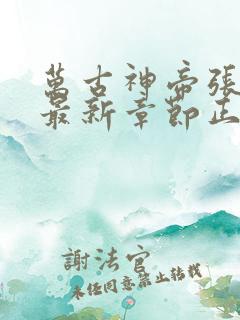 萬古神帝張
最新章節正
謝法官
未經同意禁止轉載